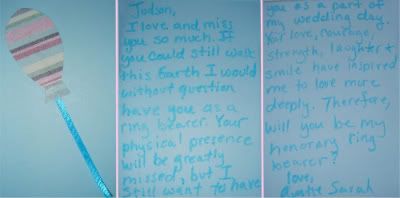 Judson,
I love and miss
you so much. If
you could still walk
this Earth I would
without question
have you as a
ring bearer. Your
physical presence
will be greatly
missed, but I
still want to have
you as a part of
my wedding day.
Your love, courage,
strength, laughter &
smile have inspired
me to love more
deeply. Therefore,
will you be my
honorary ring
bearer?
love,
Auntie Sarah